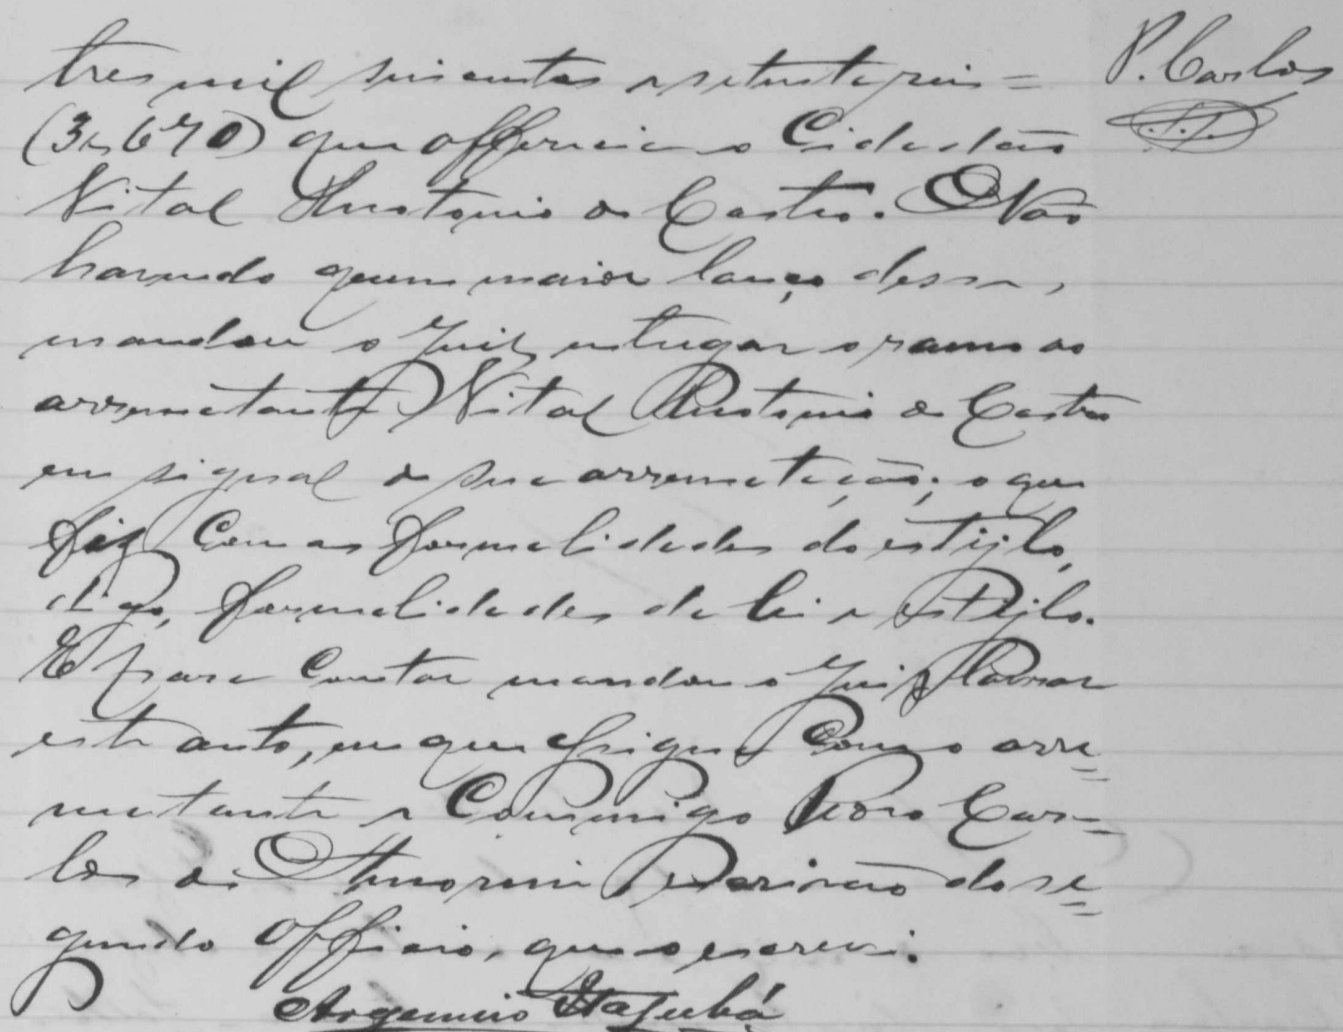 tres mil seiscentos e setenta reis =
(3$670) que offerecia o Cidadão
Vital Antonio de Castro. E Não
havendo quem maior lanço desse,
mandou o Juiz entregar o ramo ao
arrematante Vital Antonio de Castro
em signal de sua arrematação; o que
fiz com as formalidades do estijlo,
digo, formalidades da lei e estijlo.
E para constar mandou o Juiz lavrar
este auto, em que assigna com o arre=
matante e Commigo Pedro Car=
los de Amorim Escrivão do se=
gundo Officio, que o escrevi.
Argemiro Itajubá
P. Carlos